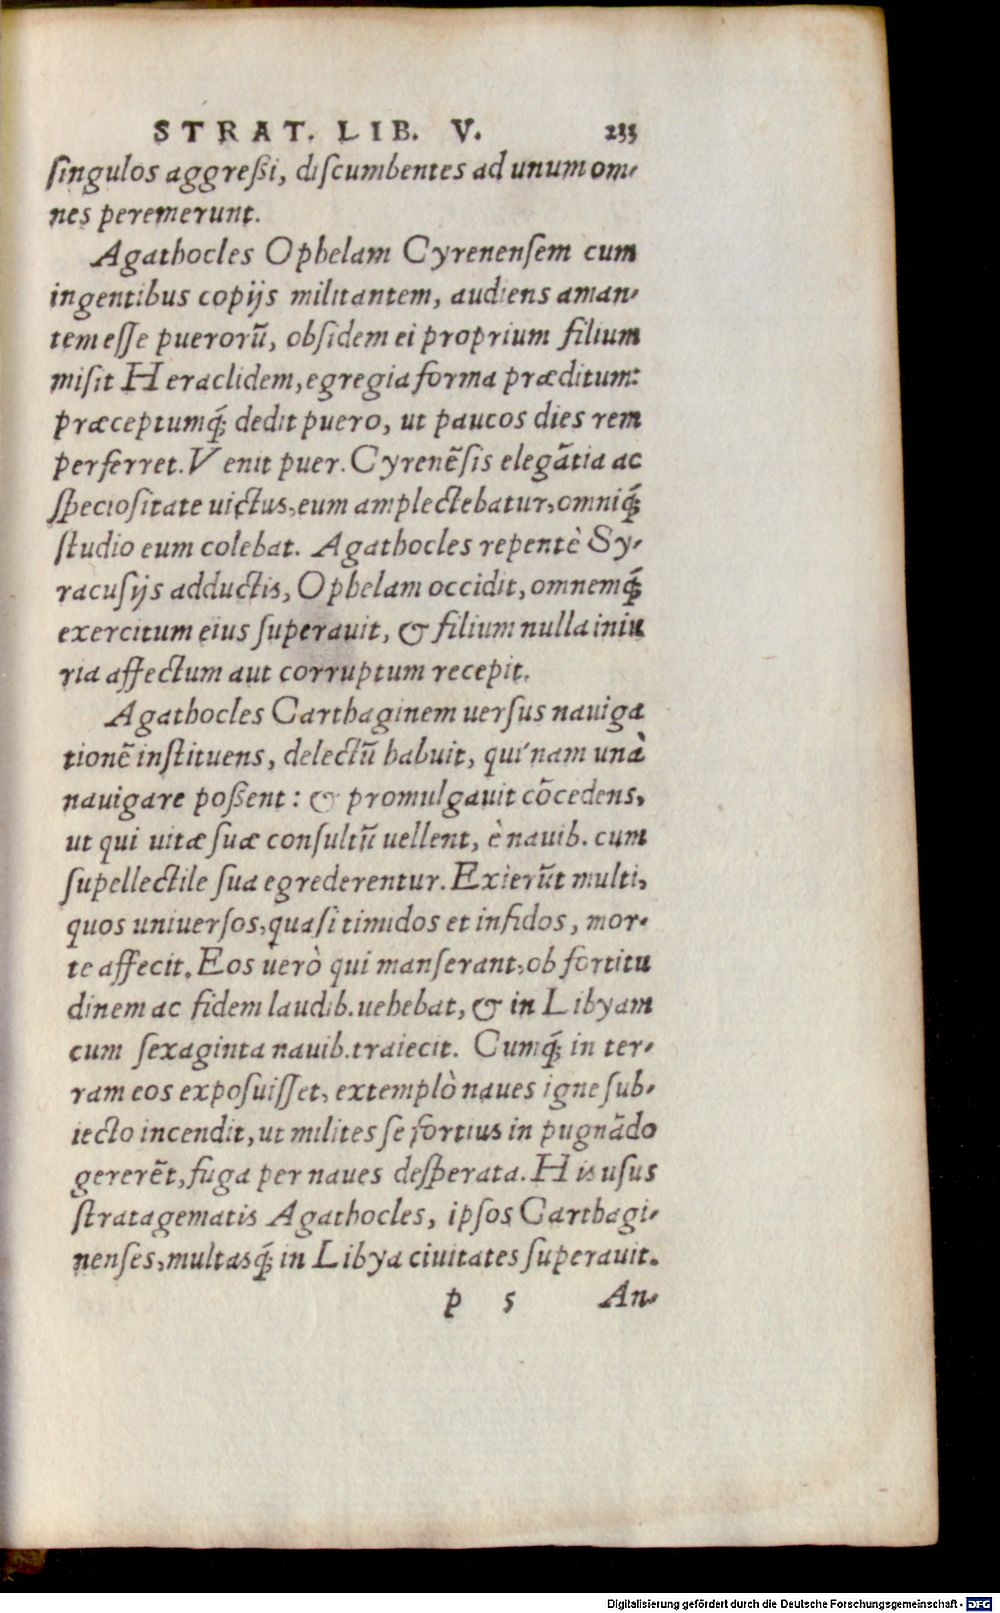 STRAT. LIB. V. 233
singulos aggreßi, discumbentes ad unum om-
nes peremerunt.
Agathocles Ophelam Cyrenensem cum
ingentibus copijs militantem, audiens aman-
tem esse puerorũ, obsidem ei proprium filium
misit Heraclidem, egregia forma præditum:
præceptumq́; dedit puero, ut paucos dies rem
perferret. Venit puer. Cyrenẽsis elegãtia ac
speciositate uictus, eum amplectebatur, omniq́;
studio eum colebat. Agathocles repentè Sy-
racusijs adductis, Ophelam occidit, omnemq́;
exercitum eius superauit, & filium nulla iniu
ria affectum aut corruptum recepit.
Agathocles Carthaginem uersus nauiga
tionẽ instituens, delectũ habuit, qui'nam unà
nauigare poßent: & promulgauit cõcedens,
ut qui uitæ suæ consultũ uellent, è nauib. cum
supellectile sua egrederentur. Exierũt multi,
quos uniuersos, quasi timidos et infidos, mor-
te affecit. Eos uerò qui manserant, ob fortitu
dinem ac fidem laudib. uehebat, & in Libyam
cum sexaginta nauib. traiecit. Cumq́; in ter-
ram eos exposuisset, extemplò naues igne sub-
iecto incendit, ut milites se fortius in pugnãdo
gererẽt, fuga per naues desperata. His usus
stratagematis Agathocles, ipsos Carthagi-
nenses, multasq́; in Libya ciuitates superauit.
p 5 An-
Digitalisierung gefördert durch die Deutsche Forschungsgemeinschaft - DFG